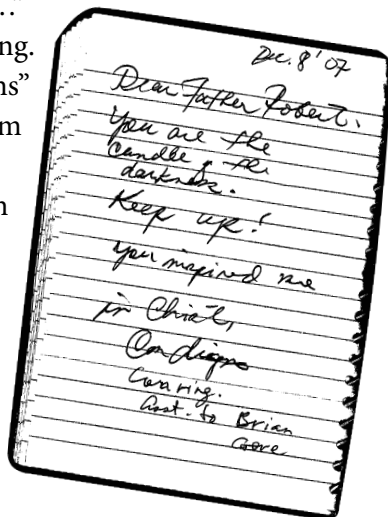 ..."
ng.
ns"
m
n
Dec. 8 '07
Dear Father Robert.
You are the
candle of the
darkness.
Keep up!
You inspired me
in Christ,
Asst. to Brian
Gore